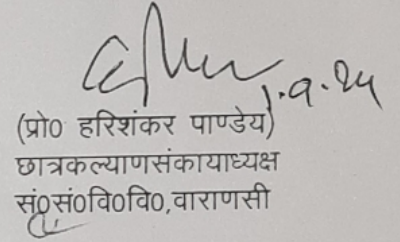 1.9.24
(प्रो0 हरिशंकर पाण्डेय)
छात्रकल्याणसंकायाध्यक्ष
सं0सं0वि0वि0,वाराणसी